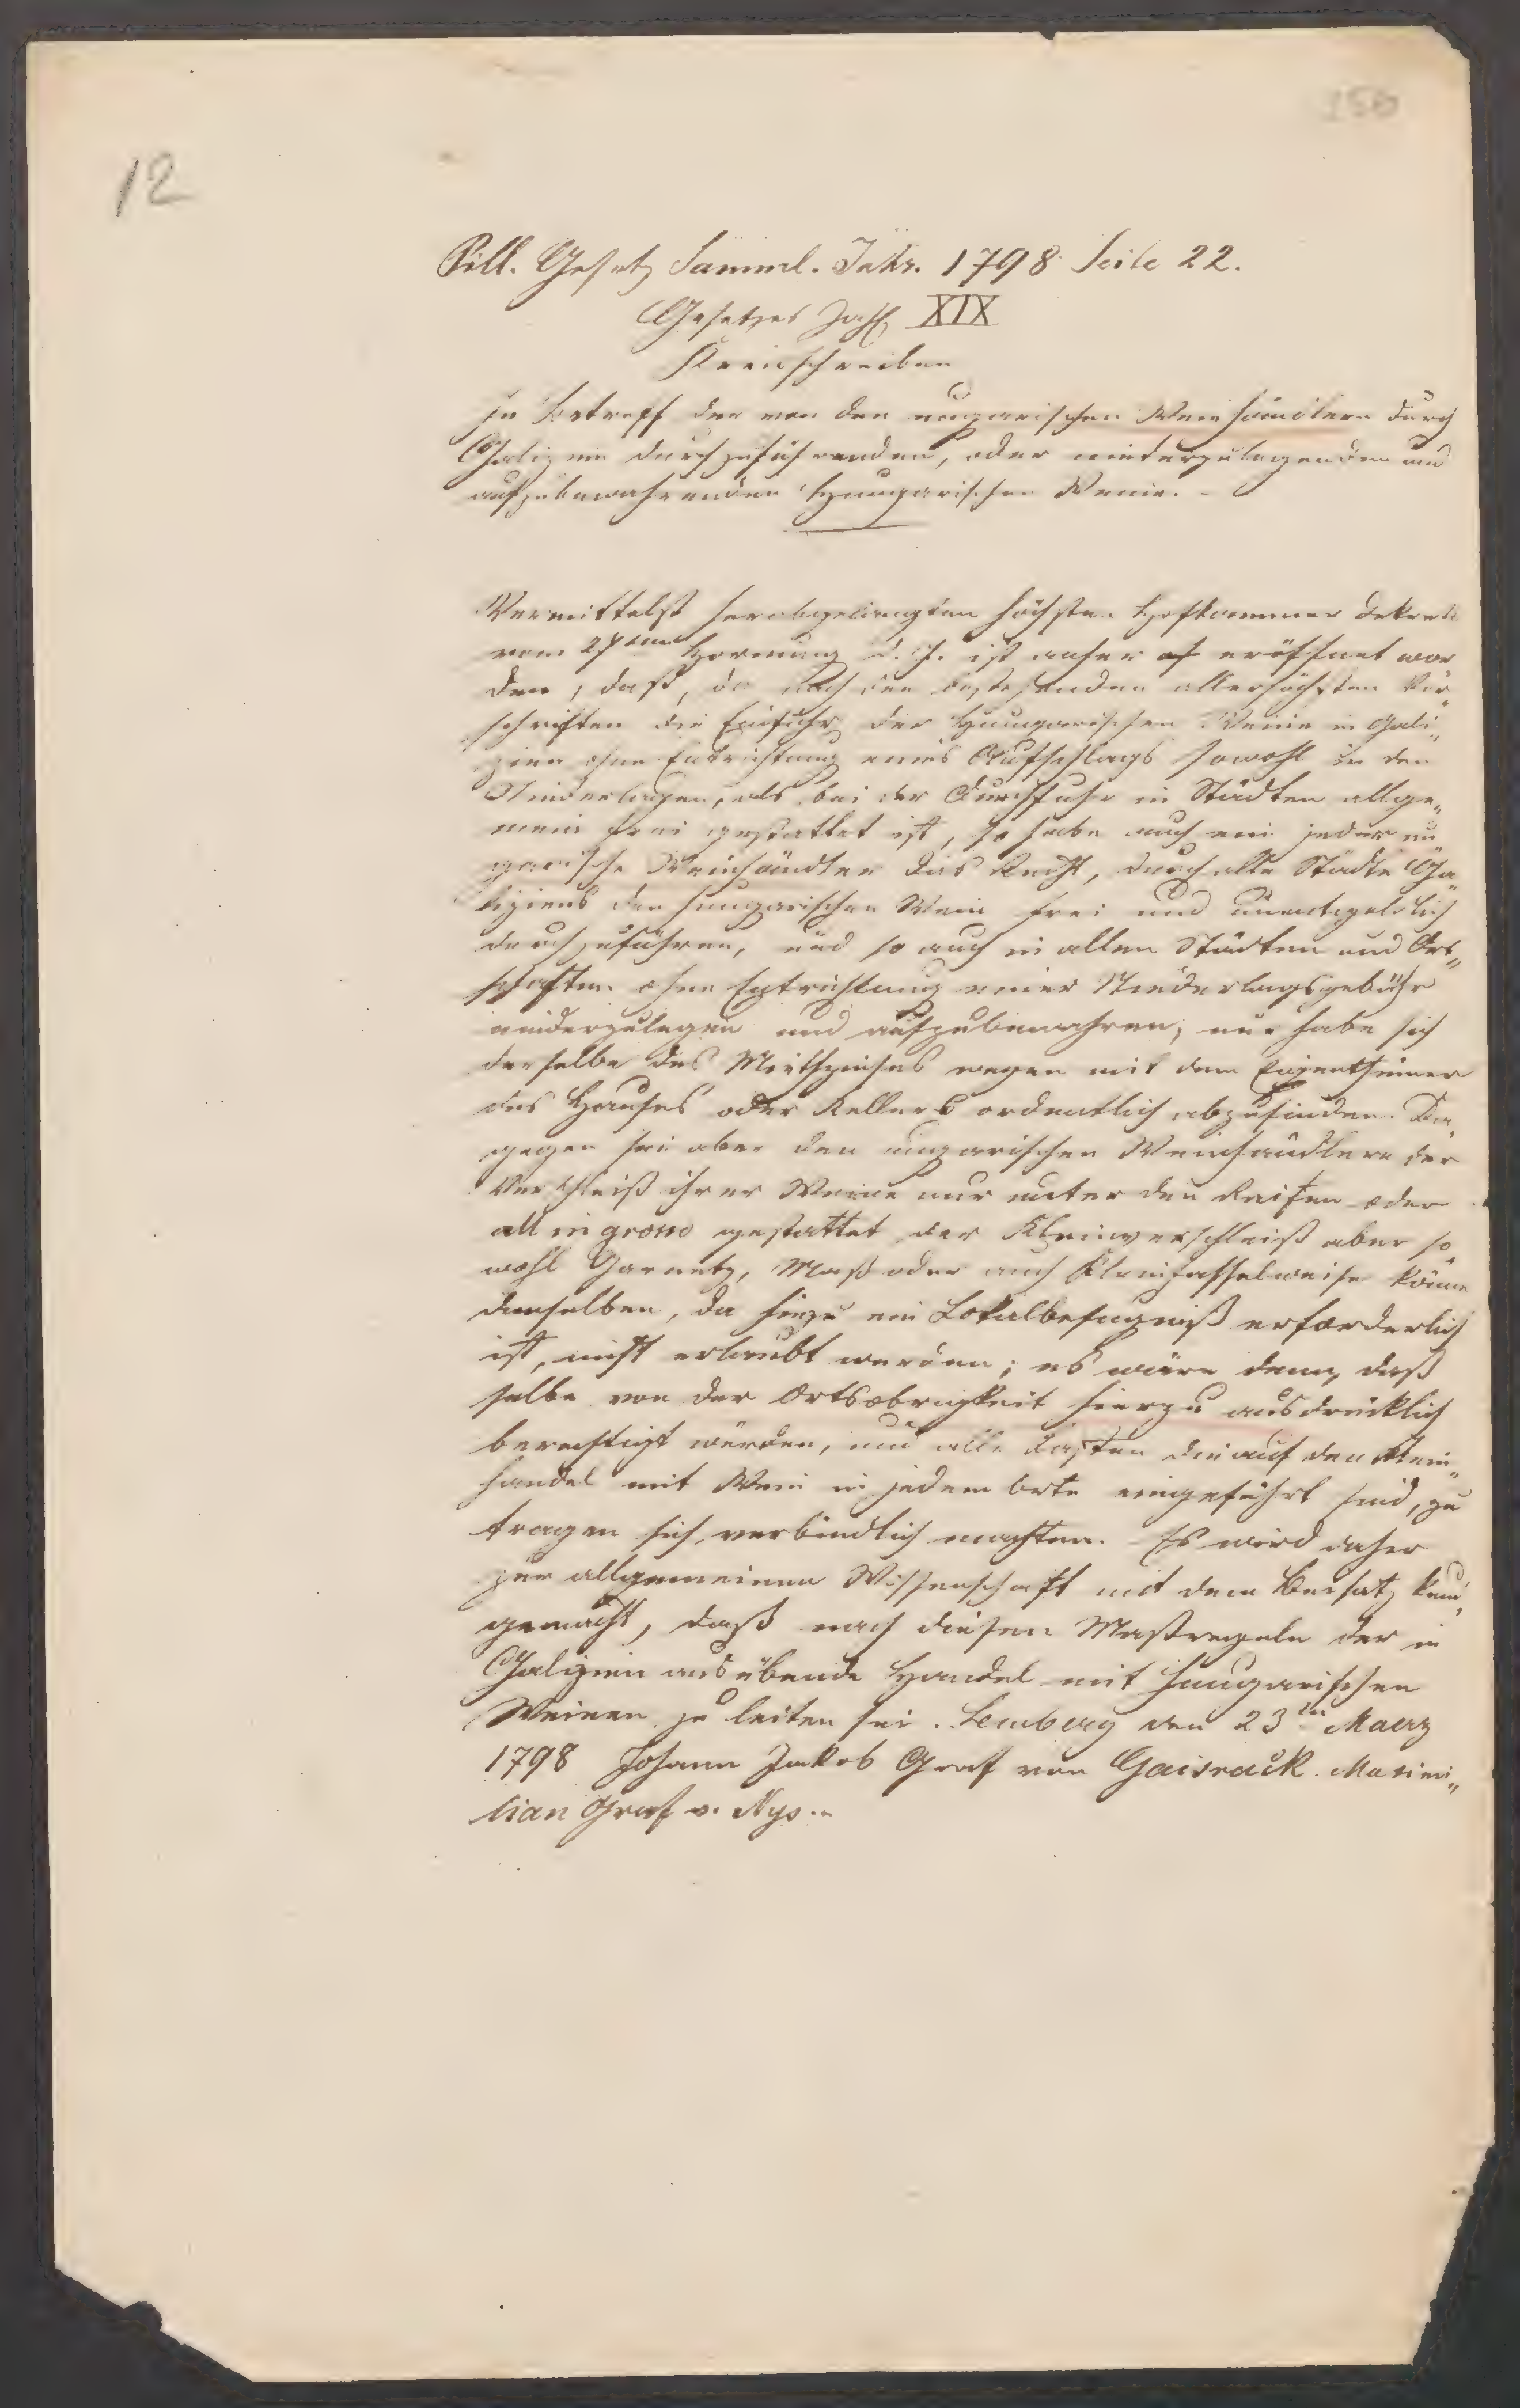 150
12
Pill. Gesetz Samml. Jahr. 1798 Seite 22.
Gesetzes Zahl XIX
Kreisschreiben
In Betreff der von den ungarischen Weinhändlern durch
Galizien durchzuführenden, oder niederzulegenden und
aufzubewahrenden Hungarischen Weine.
Vermittelst herabgelangten höchsten Hofkammer Dekrets
vom 27ten Hornung d. J. ist anher eröffnet wor
den, daß, da nach den bestehenden allerhöchsten Vor„
schriften die Einfuhr der Hungarischen Weine in Gali„
zien ohne Entrichtung eines Aufschlags sowohl in den
Niederlagen, als bei der Durchfuhr in Städten allge„
mein frei gestattet ist, so habe auch ein jeder un
garische Weinhändler das Recht, durch alle Städte Ga„
liziens den hungarischen Wein frei und unentgeldlich
durchzuführen, und so auch in allen Städten und Ort„
schaften ohne Entrichtung einer Niederlagsgebühr
niederzulegen und aufzubewahren, nur habe sich
derselbe des Miethzinses wegen mit dem Eigenthümer
des Hauses oder Kellers ordentlich abzufinden. Da„
gegen sei aber den ungarischen Weinhändlern der
Verschleiß ihrer Weine nur unter den Reifen oder
all in grosso gestattet, der Kleinverschleiß aber so„
wohl Garnetz, Maß oder auch Kleinfasselweise könne
denselben, da hiezu ein Lokalbefugniß erforderlich
ist, nicht erlaubt werden; es wäre denn, daß
selbe von der Ortsobrigkeit hierzu ausdrücklich
berechtigt würden, und alle Lasten die auf den Klein„
handel mit Wein in jedem Orte eingeführt sind, zu
tragen sich verbindlich machten. Es wird daher
zur allgemeinen Wissenschaft mit dem Beisatz kund„
gemacht, daß nach diesen Maßregeln der in
Galizien ausübende Handel mit hungarischen
Weinen zu leiten sei. Lemberg den 23ten Maerz
1798 Johann Jakob Graf von Gaisrack. Maximi„
lian Graf v. Nys.